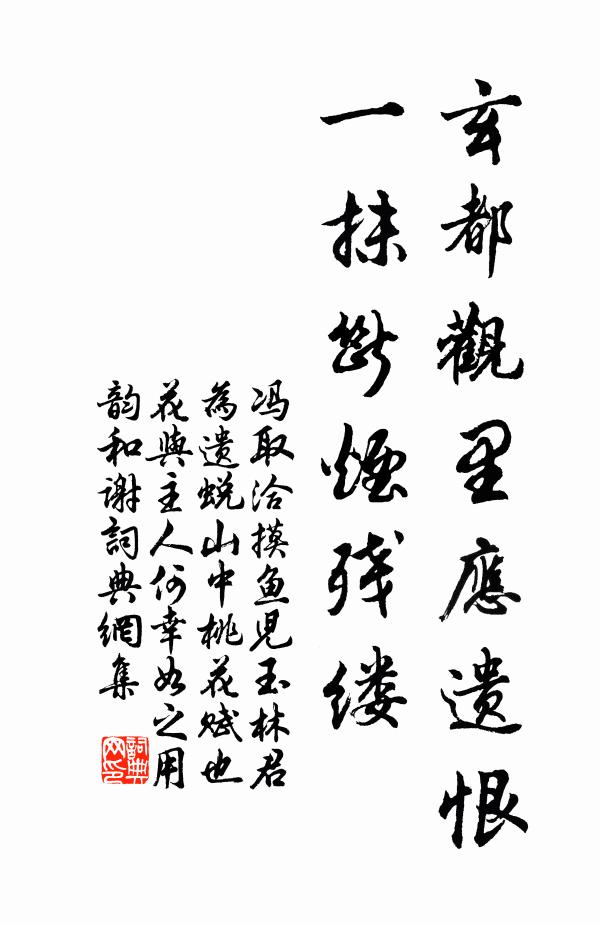 玄都觀里應遗恨
一抹斷煙残缕
冯取洽摸鱼児玉林君
為遗蜕山中桃花赋也
花與主人何幸如之用
韵和谢詞典網集
詞典
网印